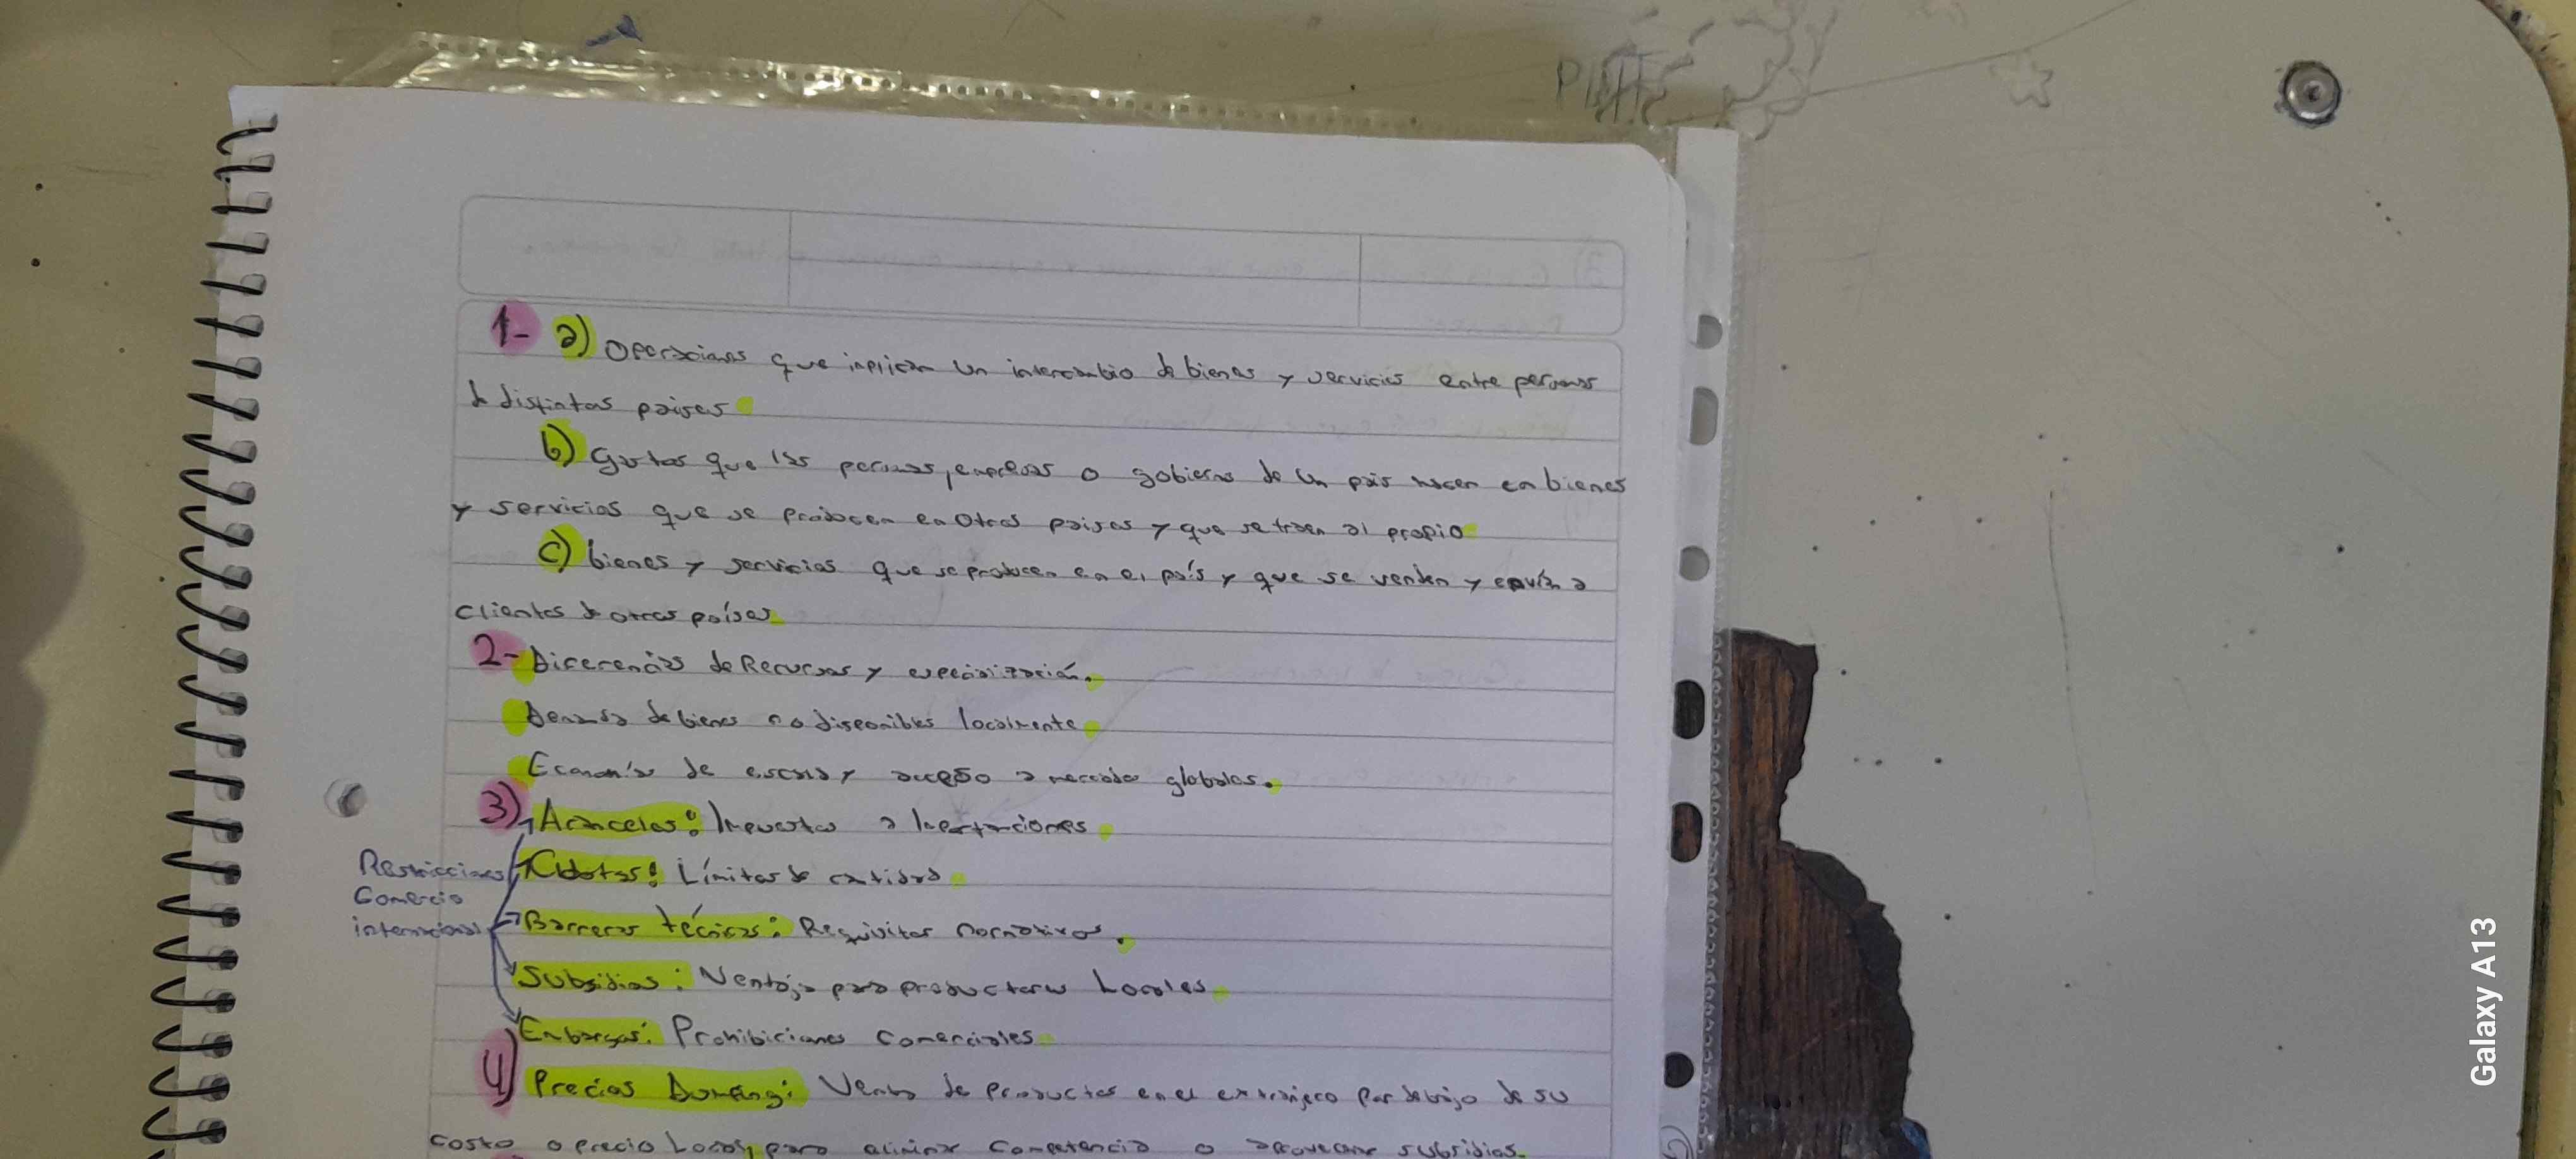 1- a) Operaciones que implican un intercambio de bienes y servicios entre personas
de distintos paises
b) Gastos que las personas, empresas o gobierno de un pais hacen en bienes
y servicios que se producen en otros paises y que se traen al propio
c) bienes y servicios que se producen en el país y que se venden y envían a
clientes de otros países
2- Diferencias de Recursos y especialización.
Demanda de bienes no disponibles localmente
Economías de escala y acceso a mercados globales.
3) Aranceles: Impuestos a Importaciones
Cuotas: Límites de cantidad
Restricciones
Comercio
internacional
Barreras técnicas: Requisitos normativos.
Subsidios: Ventaja para productores Locales
Embargos: Prohibiciones Comerciales
4) Precios Dumping: Venta de Productos en el extranjero por debajo de su
costo o precio Local, para eliminar Competencia o aprovechar subsidios.
PINTE
Galaxy A13